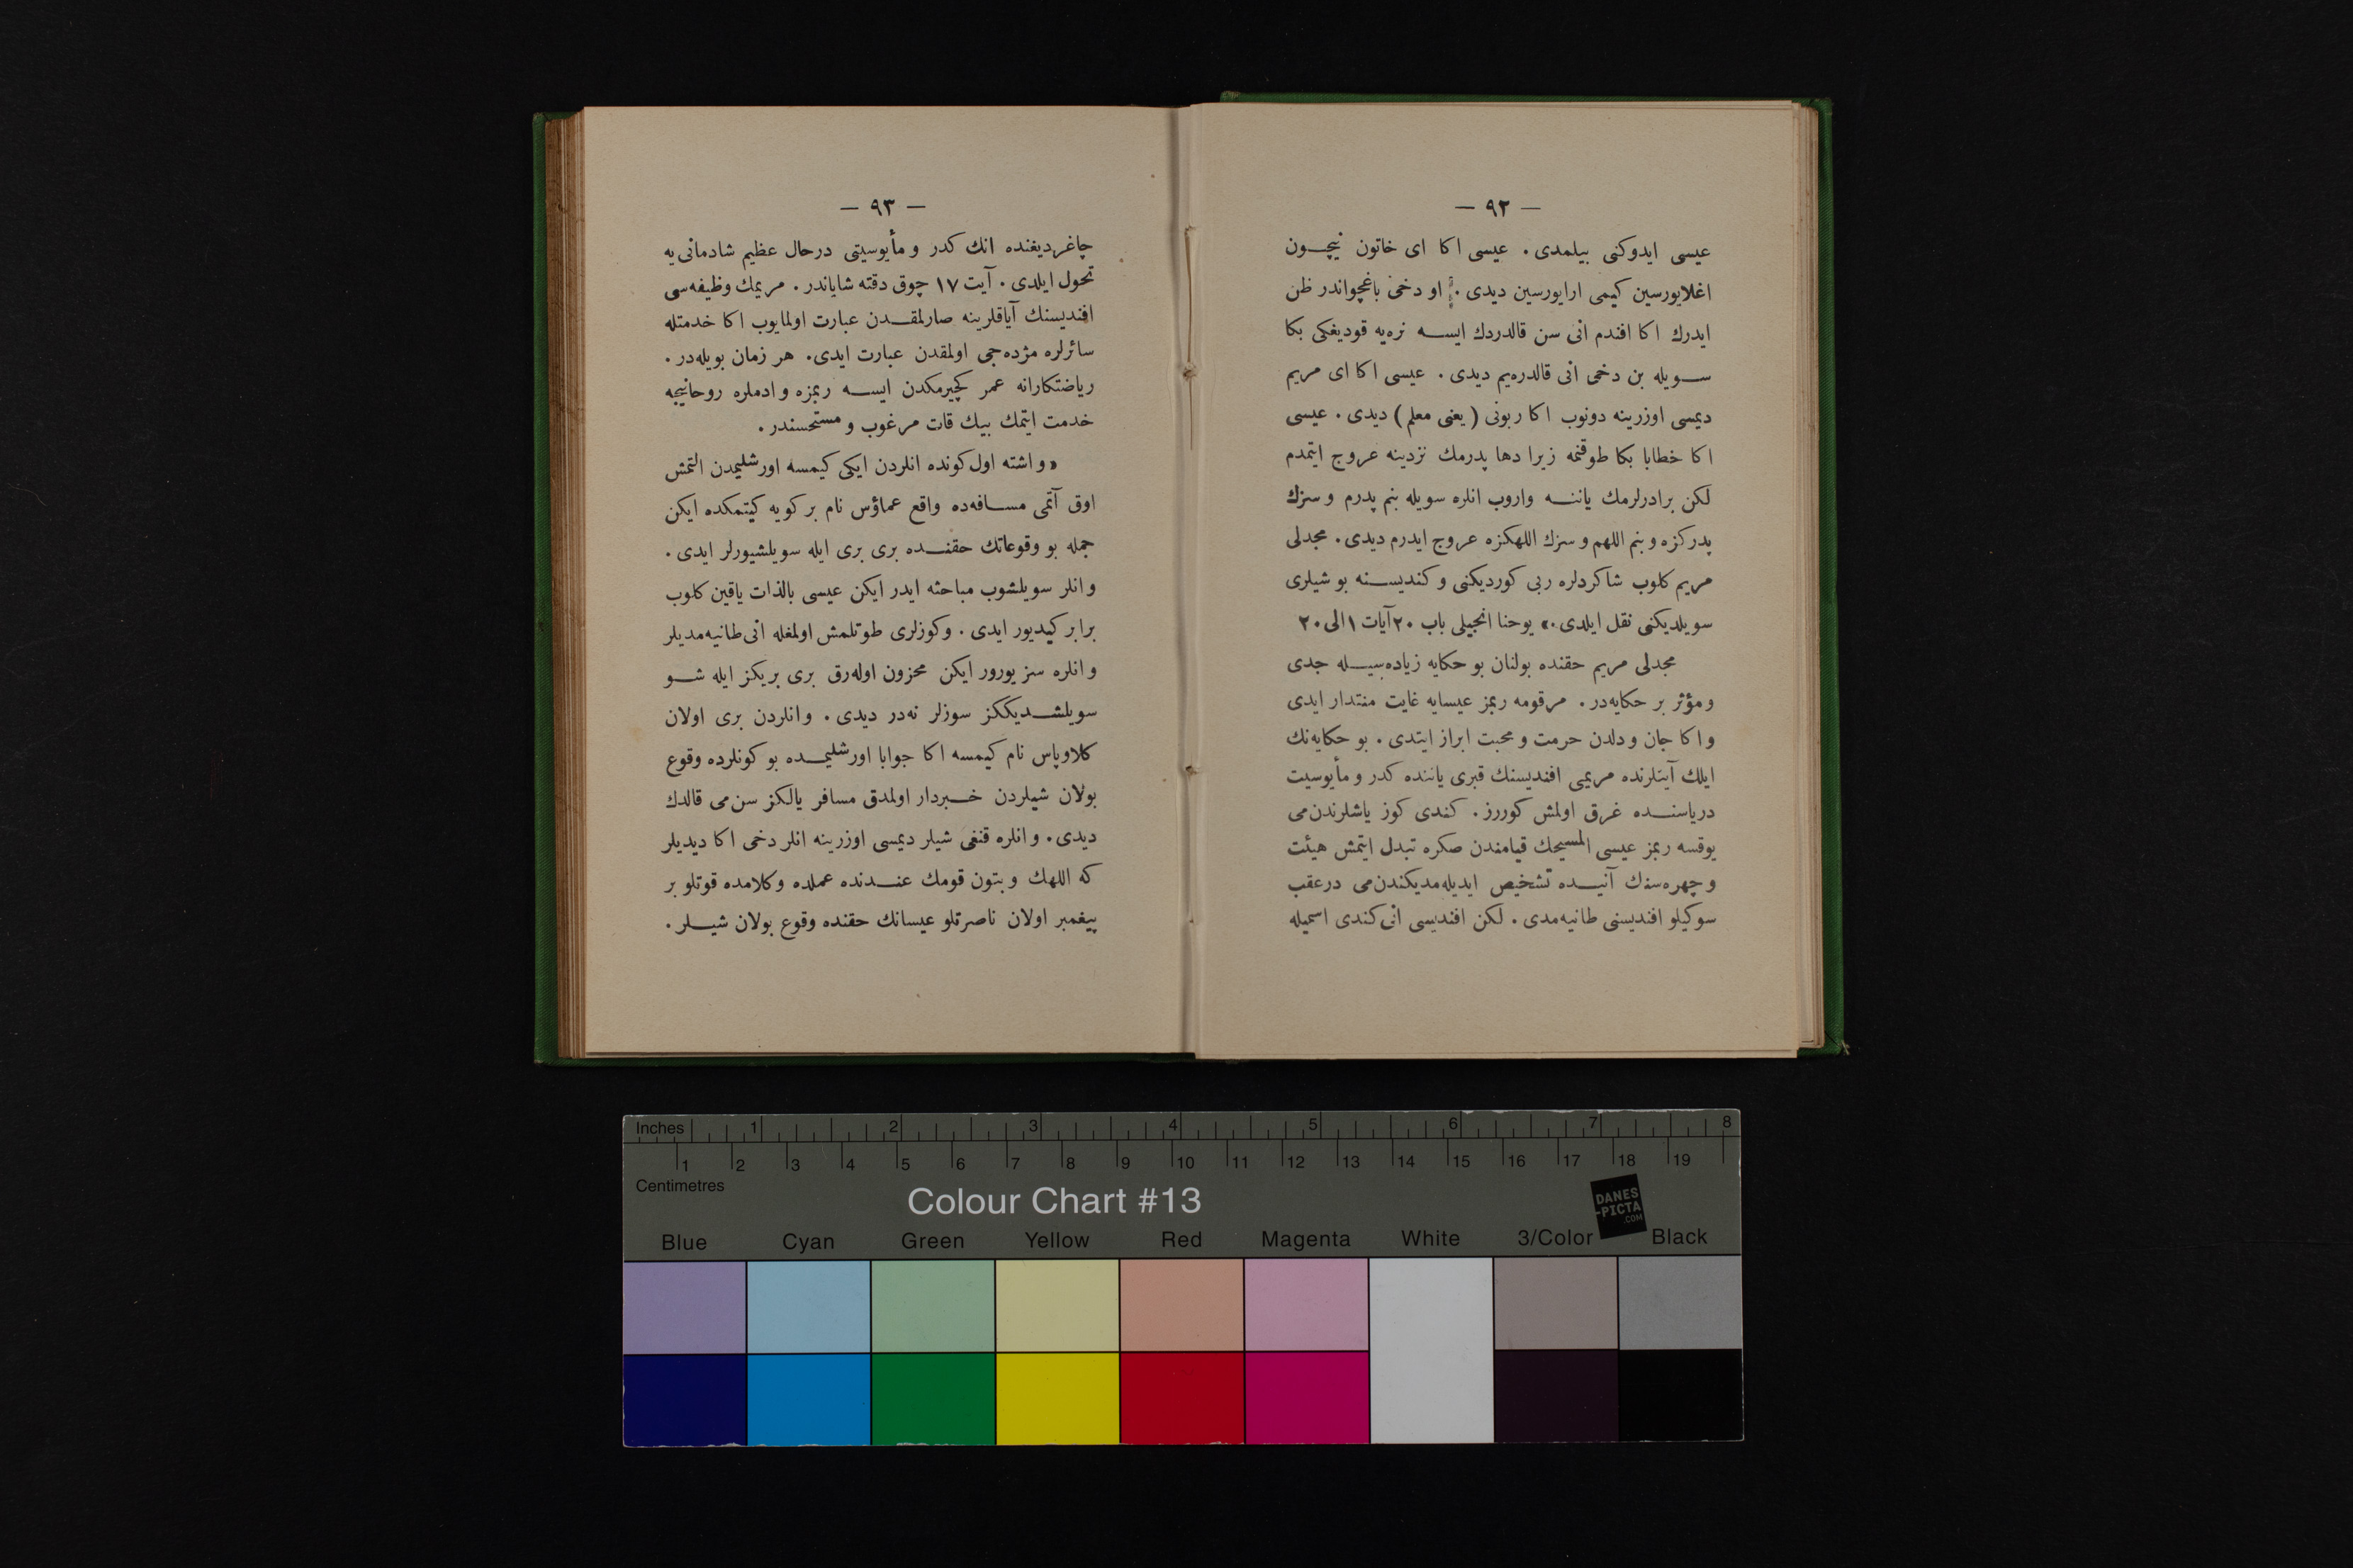 — ٩٢ —
عیسی ایدوكنی بیلمدی ٠ عیسی اكا ای خاتون نیچـون
اغلایورسین كیمی ارایورسین دیدی ٠ او دخی باغچواندر ظن
ایدرك اكا افندم انی سن قالدردك ایسـه نرەیه قودیغكی بكا
سـویله بن دخی انی قالدرەیم دیدی ٠ عیسی اكا ای مریم
دیمسی اوزرینه دونوب اكا ربونی ( یعنی معلم ) دیدی ٠ عیسی
اكا خطابا بكا طوقنمه زیرا دها پدرمك نزدینه عروج ایتمدم
لكن برادرلرمك یاننـه واروب انلره سویله بنم پدرم و سزك
پدركزه و بنم اللهم و سزك اللهكزه عروج ایدرم دیدی ٠ مجدلی
مریم كلوب شاكردلره ربی كوردیكنی و كندیسـنه بو شیلری
سویلدیكنی نقل ایلدی ٠» یوحنا انجیلی باب ٢٠ آیات ١ الی ٢٠
مجدلی مریم حقنده بولنان بو حكایه زیادەسیـله جدی
و مؤثر بر حكایەدر ٠ مرقومه ربمز عیسایه غایت منتدار ایدی
و اكا جان و دلدن حرمت و محبت ابراز ایتدی ٠ بو حكایەنك
ایلك آیتلرنده مریمی افندیسنك قبری یاننده كدر و مأیوسیت
دریاسنـده غرق اولمش كوررز ٠ كندی كوز یاشلرندن می
یوقسه ربمز عیسی المسیحك قیامندن صكره تبدل ایتمش هیئت
و چهرەسنك آنیـده تشخیص ایدیلەمدیكندن می درعقب
سوكیلو افندیسنی طانیەمدی ٠ لكن افندیسی انی كندی اسمیله
— ٩٣ —
چاغردیغنده انك كدر و مأیوسیتی درحال عظیم شادمانی یه
تحول ایلدی ٠ آیت ١٧ چوق دقته شایاندر ٠ مریمك وظیفەسی
افندیسنك آیاقلرینه صارلمقـدن عبارت اولمایوب اكا خدمتله
سائرلره مژدەجی اولمقدن عبارت ایدی٠ هر زمان بویلەدر ٠
ریاضتكارانه عمر كچیرمكدن ایسـه ربمزه و ادملره روحانیجه
خدمت ایتمك بیك قات مرغوب و مستحسندر ٠
«و اشته اول كونده انلردن ایكی كیمسه اورشلیمدن التمش
اوق آتمی مسـافەده واقع عماؤس نام بر كویه كیتمكده ایكن
جمله بو وقوعاتك حقنـده بری بری ایله سویلشیورلر ایدی ٠
و انلر سویلشوب مباحثه ایدر ایكن عیسی بالذات یاقین كلوب
برابر كیدیور ایدی ٠ و كوزلری طوتلمش اولمغله انی طانیەمدیلر
و انلره سز یورور ایكن محزون اولەرق بری بریكز ایله شـو
سویلشـدیككز سوزلر نەدر دیدی ٠ و انلردن بری اولان
كلاوپاس نام كیمسه اكا جوابا اورشلیمـده بو كونلرده وقوع
بولان شیلردن خـبردار اولمدق مسافر یالكز سن می قالدك
دیدی ٠ و انلره قنغی شیلر دیمسی اوزرینه انلر دخی اكا دیدیلر
كه اللهك و بتون قومك عنـدنده عملده و كلامده قوتلو بر
پیغمبر اولان ناصرتلو عیسانك حقنده وقوع بولان شیـلر ٠
Inches 1 2 3 4 5 6 7 8
1 2 3 4 5 6 7 8 9 10 11 12 13 14 15 16 17 18 19
Centimetres
Colour Chart #13
DANES
-PICTA
.COM
Blue Cyan Green Yellow Red Magenta White 3/Color Black